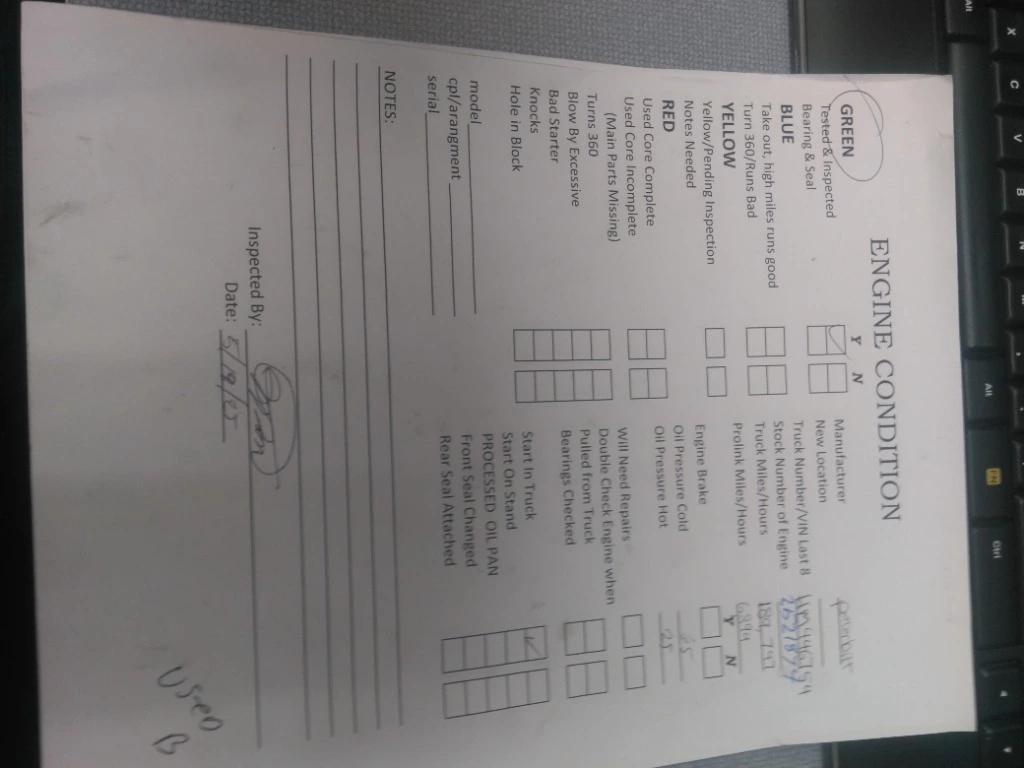 ENGINE CONDITION
Y N
GREEN
Tested & Inspected
Bearing & Seal
BLUE
Take out, high miles runs good
Turn 360/Runs Bad
YELLOW
Yellow/Pending Inspection
Notes Needed
RED
Used Core Complete
Used Core Incomplete
(Main Parts Missing)
Turns 360
Blow By Excessive
Bad Starter
Knocks
Hole in Block
model
cpl/arangment
serial
Manufacturer
New Location
Truck Number/VIN Last 8
Stock Number of Engine
Truck Miles/Hours
Prolink Miles/Hours
Y N
Engine Brake
Oil Pressure Cold
Oil Pressure Hot 25
Will Need Repairs
Double Check Engine when
Pulled from Truck
Bearings Checked
Start In Truck
Start On Stand
PROCESSED OIL PAN
Front Seal Changed
Rear Seal Attached
NOTES:
Inspected By:
Date:
USED
B